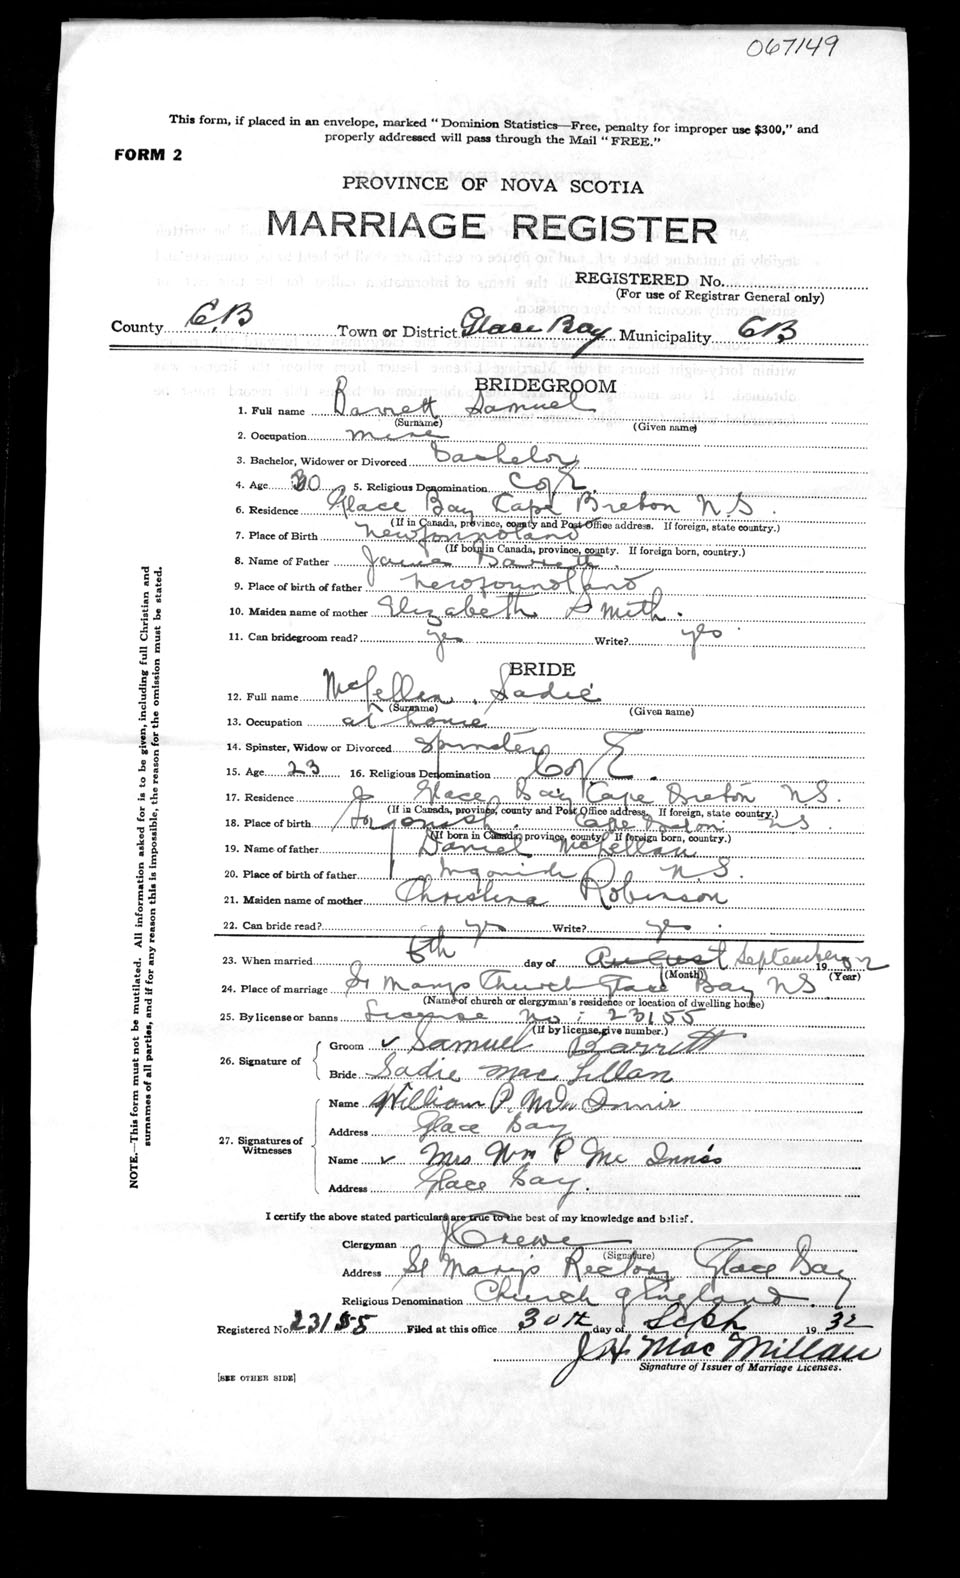 067149
This form, if placed in an envelope, marked "Dominion Statistics—Free, penalty for improper use $300," and
properly addressed will pass through the Mail "FREE."
FORM 2
PROVINCE OF NOVA SCOTIA
MARRIAGE REGISTER
REGISTERED No.
(For use of Registrar General only)
County C.B Town or District Glace Bay Municipality CB
BRIDEGROOM
1. Full name Barrett Samuel
(Surname) (Given name)
2. Occupation
3. Bachelor, Widower or Divorced Bachelor
4. Age 30 5. Religious Denomination C of E.
6. Residence Glace Bay Cape Breton N.S.
(If in Canada, province, county and Post Office address. If foreign, state country.)
7. Place of Birth
(If born in Canada, province, county. If foreign born, country.)
8. Name of Father James Barrett.
9. Place of birth of father Newfoundland
10. Maiden name of mother Elizabeth Smith.
11. Can bridegroom read? yes Write? yes
BRIDE
12. Full name McLellan, Sadie
(Surname) (Given name)
13. Occupation at home
14. Spinster, Widow or Divorced Spinster
15. Age 23 16. Religious Denomination C of E.
17. Residence Glace Bay Cape Breton N.S.
(If in Canada, province, county and Post Office address. If foreign, state country.)
18. Place of birth Cape Breton N.S.
(If born in Canada, province, county. If foreign born, country.)
19. Name of father Daniel McLellan
20. Place of birth of father N.S.
21. Maiden name of mother Christina Robinson
22. Can bride read? yes Write? yes.
23. When married 6th day of August September 1932
(Month) (Year)
24. Place of marriage St Marys Church Glace Bay N.S.
(Name of church or clergyman's residence or location of dwelling house)
25. By license or banns License No: 23155
(If by license, give number.)
26. Signature of Groom Samuel Barrett
Bride Sadie MacLellan
27. Signatures of Witnesses Name William P. Innis
Address Glace Bay
Name Mrs Wm P Mc Innis
Address Glace Bay.
I certify the above stated particulars are true to the best of my knowledge and belief.
Clergyman
(Signature)
Address St Mary's Rectory Glace Bay
Religious Denomination Church of England.
Registered No. 23155 Filed at this office 30th day of Sept 1932
J H MacMillan
Signature of Issuer of Marriage Licenses.
[SEE OTHER SIDE]
NOTE.—This form must not be mutilated. All information asked for is to be given, including full Christian and
surnames of all parties, and if for any reason this is impossible, the reason for the omission must be stated.